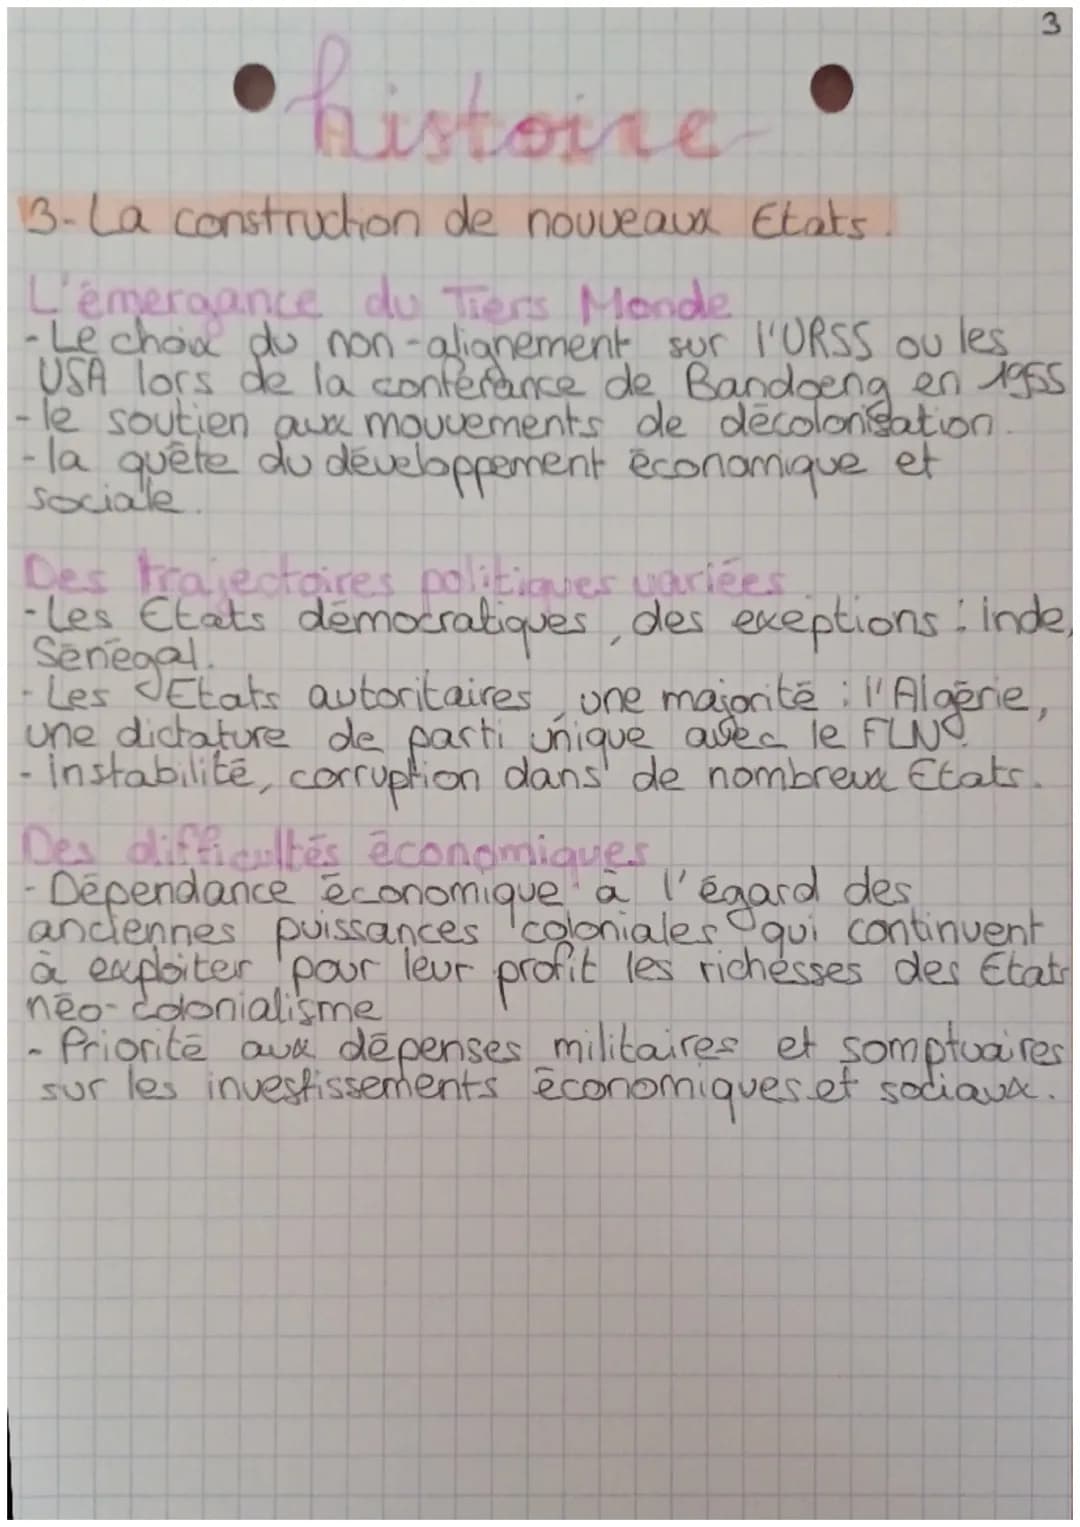 3
histoire
3-La construction de nouveaux Etats.
L'émergance du Tiers Monde
-Le choix du non-alignement sur l'URSS ou les
USA lors de la conférance de Bandoeng en 1955
-le soutien aux mouvements de décolonisation.
-la quête du développement économique et
sociale.
Des trajectoires politiques variées
-Les Etats démocratiques, des exeptions : inde,
Sénégal.
-Les Etats autoritaires, une majorité : l'Algérie,
une dictature de parti unique avec le FLN.
-instabilité, corruption dans de nombreux Etats.
Des difficultés économiques
-Dépendance économique à l'égard des
anciennes puissances coloniales qui continuent
à exploiter pour leur profit les richesses des Etats
néo-colonialisme
-Priorité aux dépenses militaires et somptuaires
sur les investissements économiques et sociaux.